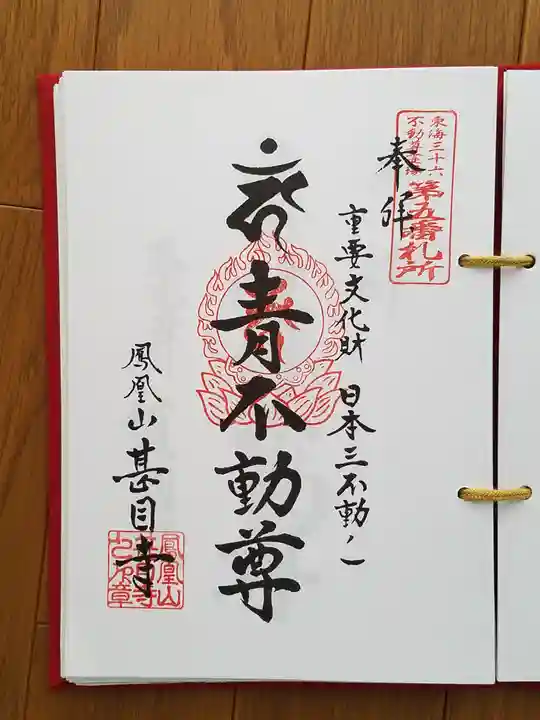 東海三十六
不動尊霊場
第五番札所
奉拝
重要文化財 日本三不動ノ一
青不動尊
鳳凰山甚目寺
鳳凰山